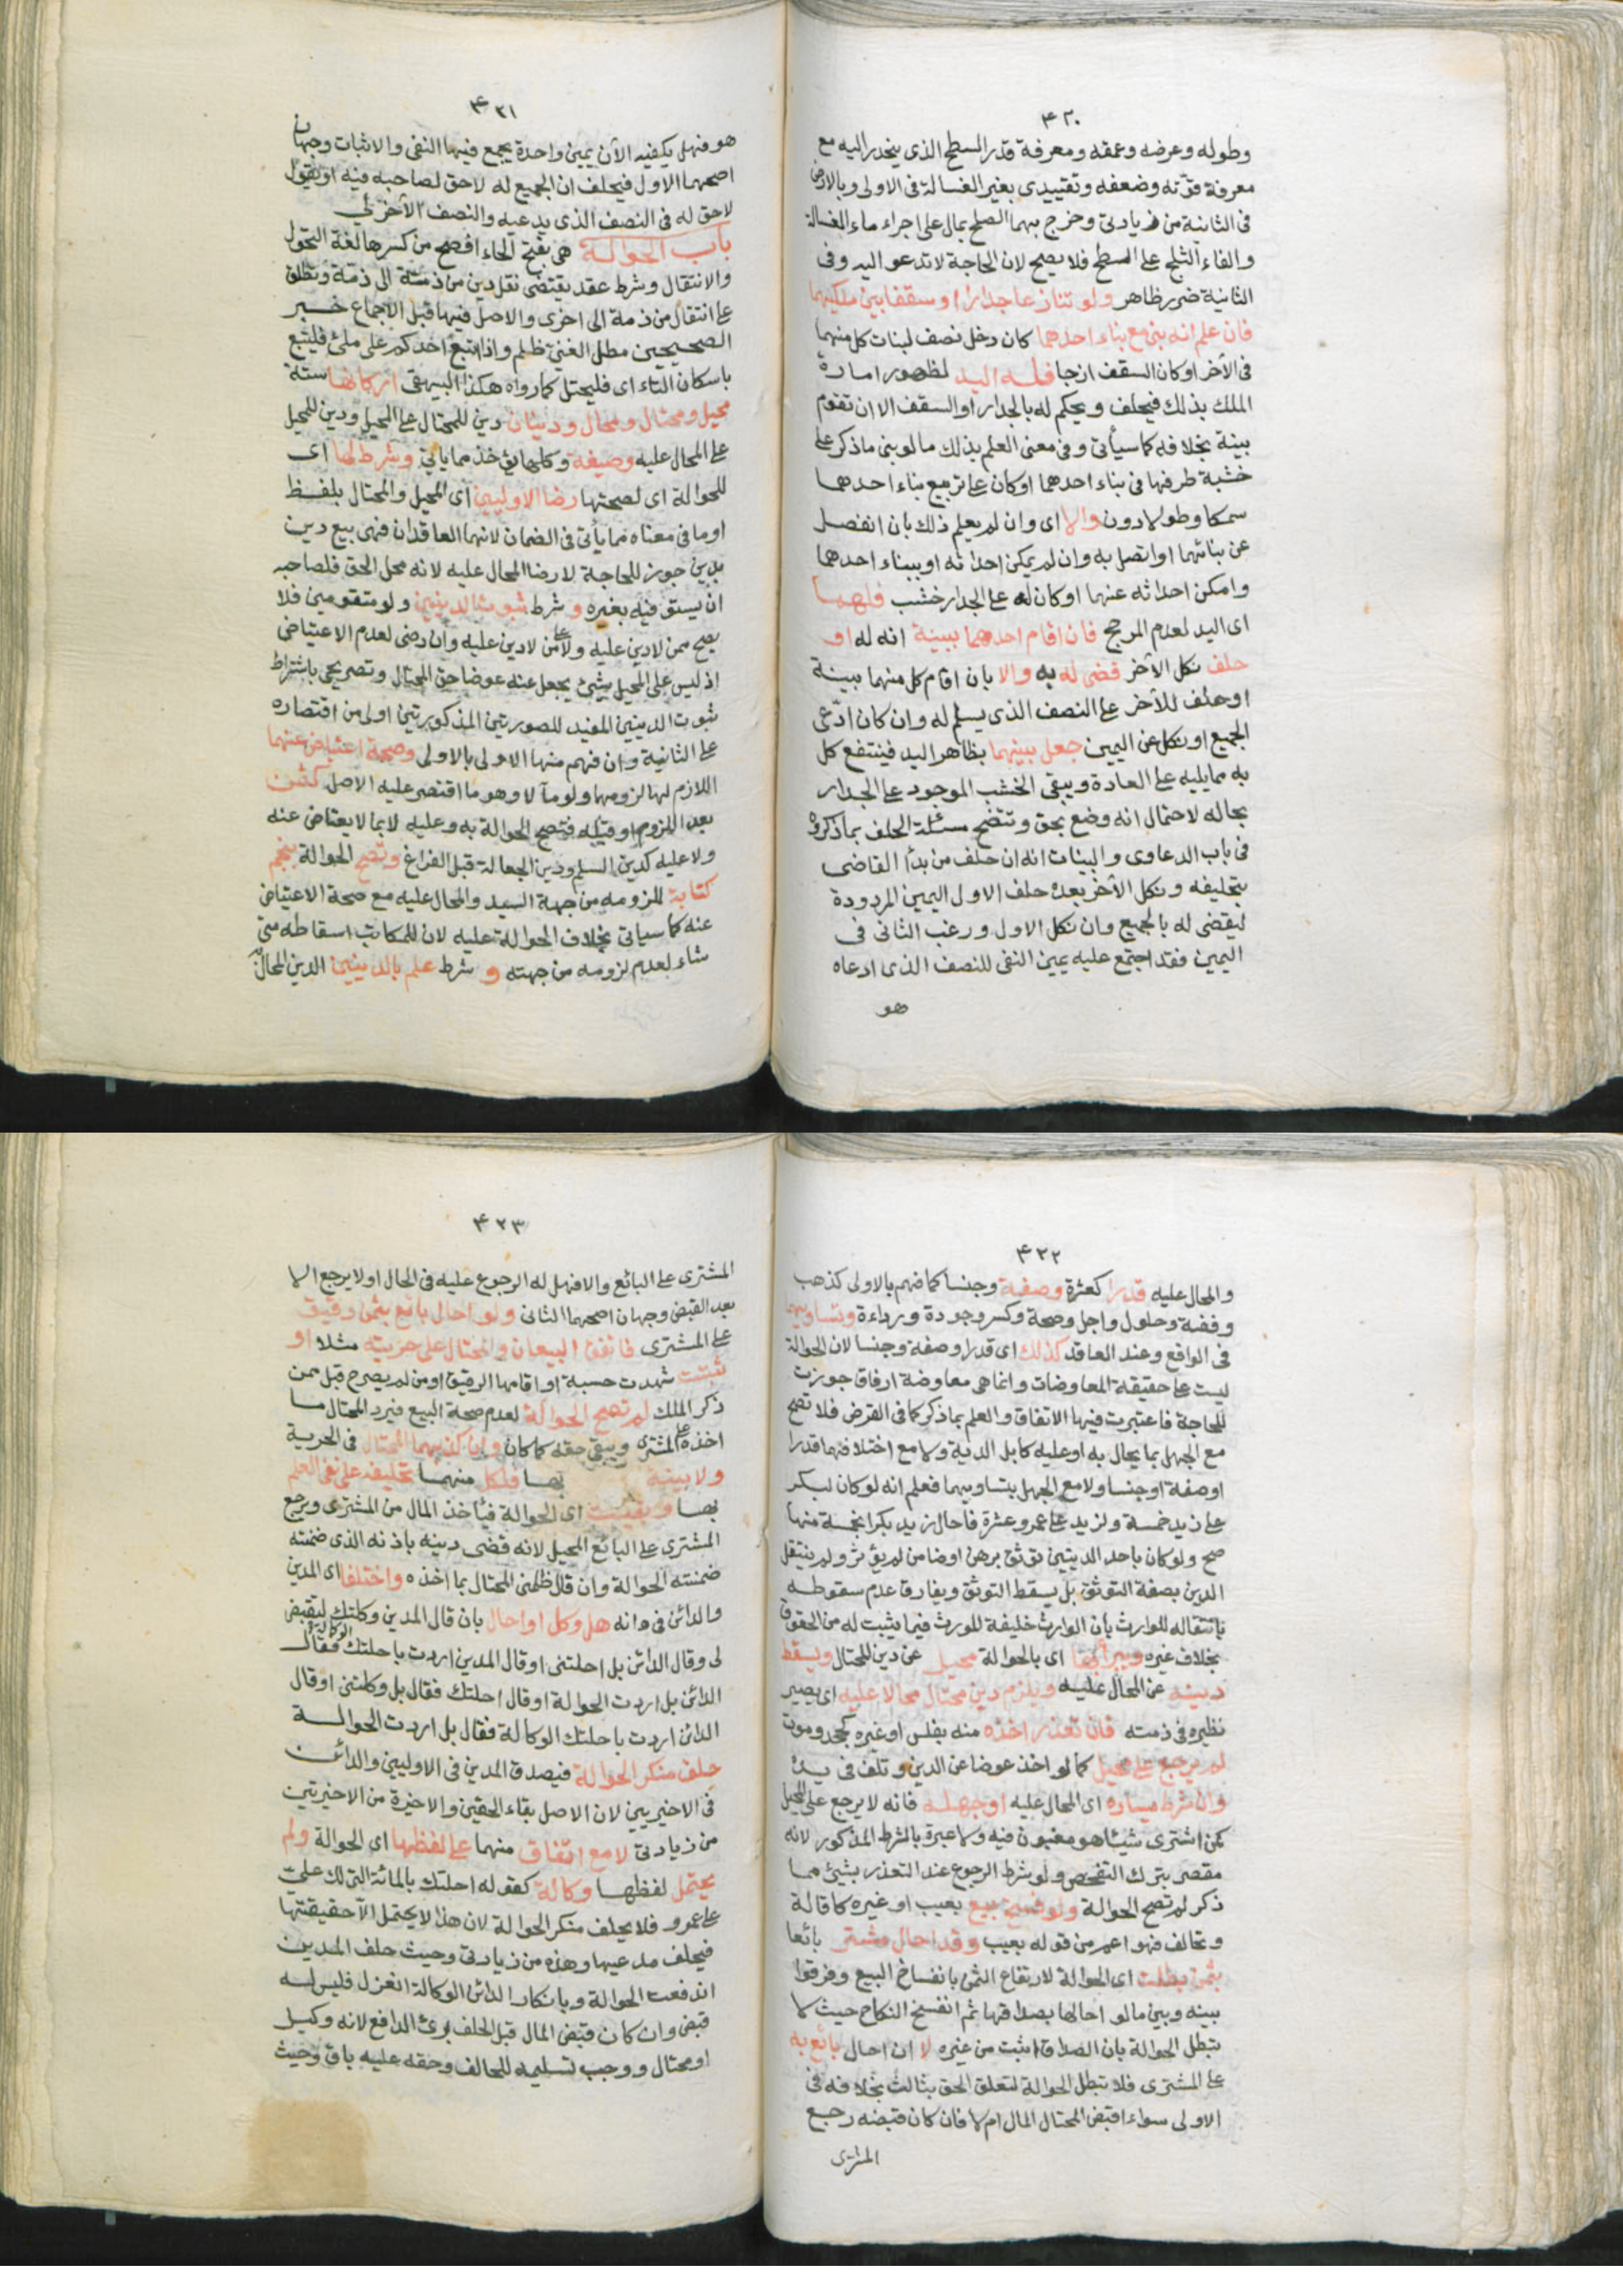 ٤٢٠
وطوله وعرضه وعمقه ومعرفة قدر السطح الذى ينحدر اليه مع
معرفة قوّته وضعفه وتقييدى بغير الغسالة فى الاولى وبالارض
فى الثانية من زيادتى وخرج بهما الصلح بمال على اجراء ماء الغسالة
والقاء الثلج على السطح فلا يصح لان الحاجة لا تدعو اليه وفى
الثانية ضرر ظاهر ولو تنازعا جدارا او سقفا بين ملكيهما
فان علم انه بنى مع بناء احدهما كان دخل نصف لبنات كل منهما
فى الآخر او كان السقف ازجا فله اليد لظهور امارة
الملك بذلك فيحلف ويحكم له بالجدار او السقف الا ان تقوم
بينة بخلافه كما سيأتى وفى معنى العلم بذلك ما لو بنى ما ذكر على
خشبة طرفها فى بناء احدهما او كان على تربيع بناء احدهما
سمكا وطولا دون والا اى وان لم يعلم ذلك بان انفصل
عن بنائهما او اتصل به وان لم يمكن احداثه او ببناء احدهما
وامكن احداثه عنهما او كان له على الجدار خشب فلهما
اى اليد لعدم المرجح فان اقام احدهما ببينة انه له او
حلف نكل الآخر قضى له به والا بان اقام كل منهما بينة
او حلف للآخر على النصف الذى يسلم له وان كان ادّعى
الجميع او نكل عن اليمين جعل بينهما بظاهر اليد فينتفع كل
به مما يليه على العادة ويبقى الخشب الموجود على الجدار
بحاله لاحتمال انه وضع بحق وتتضح مسئلة الحلف بما ذكروه
فى باب الدعاوى والبينات انه ان حلف من بدأ القاضى
بتحليفه ونكل الآخر بعده حلف الاول اليمين المردودة
ليقضى له بالجميع وان نكل الاول ورغب الثانى فى
اليمين فقد اجتمع عليه يمين النفى للنصف الذى ادعاه
هو
٤٢١
هو فهل يكفيه الآن يمين واحدة يجمع فيها النفى والاثبات وجهان
اصحهما الاول فيحلف ان الجميع له لاحق لصاحبه فيه او يقول
لاحق له فى النصف الذى يدعيه والنصف الآخر لي
باب الحوالة هى بفتح الحاء افصح من كسرها لغة التحول
والانتقال وشرط عقد يقتضى نقل دين من ذمّة الى ذمّة وتطلق
على انتقال من ذمة الى اخرى والاصل فيها قبل الاجماع خبر
الصحيحين مطل الغنى ظلم واذا اتبع احدكم على ملئ فليتبع
باسكان التاء اى فليحتل كما رواه هكذا البيهقى اركانها ستة
محيل ومحتال ومحال ودينان دين للمحتال على المحيل ودين للمحيل
على المحال عليه وصيغة وكلها يؤخذ مما ياتى وشرط لها اى
للحوالة اى لصحتها رضا الاوليين اى المحيل والمحتال بلفظ
او ما فى معناه مما يأتى فى الضمان لانهما العاقدان فهى بيع دين
بدين جوز للحاجة لا رضا المحال عليه لانه محل الحق فلصاحبه
ان يستوفيه بغيره و شرط ثبوت الدينين ولو متقومين فلا
يصح ممن لا دين عليه ولا على من لا دين عليه وان رضى لعدم الاعتياض
اذ ليس على المحيل شئ يجعل عنه عوضا حق المحتال وتصريحى باشتراط
ثبوت الدينين المفيد للصورتين المذكورتين اولى من اقتصاره
على الثانية وان فهم منها الاولى بالاولى وصحة اعتياض عنهما
اللازم لها لزومهما ولو مآلا وهو ما اقتصر عليه الاصل كثمن
بعد اللزوم او قبله فتصح الحوالة به وعليه لا بما لا يعتاض عنه
ولا عليه كدين السلم ودين الجعالة قبل الفراغ وتصح الحوالة بنجم
كتابة للزومه من جهة السيد والمحال عليه مع صحة الاعتياض
عنه كما سياتى بخلاف الحوالة عليه لان للمكاتب اسقاطه متى
شاء لعدم لزومه من جهته و شرط علم بالدينين الدين المحال به
٤٢٢
والمحال عليه قدرا كعشرة وصفة وجنسا كما فهم بالاولى كذهب
وفضة وحلول واجل وصحة وكسر وجودة ورداءة وتساويهما
فى الواقع وعند العاقد كذلك اى قدرا وصفة وجنسا لان الحوالة
ليست على حقيقة المعاوضات وانما هى معاوضة ارفاق جوزت
للحاجة فاعتبرت فيها الاتفاق والعلم بما ذكر كما فى القرض فلا تصح
مع الجهل بما يحال به او عليه كابل الدية ولا مع اختلافهما قدرا
او صفة او جنسا ولا مع الجهل بتساويهما فعلم انه لو كان لبكر
على زيد خمسة ولزيد على عمرو عشرة فاحال زيد بكرا بخمسة منها
صح ولو كان باحد الدينين توثق برهن او ضامن لم يؤثر ولم ينتقل
الدين بصفة التوثق بل يسقط التوثق ويفارق عدم سقوطه
بانتقاله للوارث بان الوارث خليفة للمورث فيما يثبت له من الحقوق
بخلاف غيره ويبرأ بها اى بالحوالة محيل عن دين المحتال ويسقط
دينه عن المحال عليه ويلزم دين محتال محالا عليه اى يصير
نظيره فى ذمته فان تعذر اخذه منه بفلس او غيره كجحد وموت
لم يرجع على محيل كما لو اخذ عوضا عن الدين وتلف فى يده
وان شرط يساره اى المحال عليه او جهله فانه لا يرجع على المحيل
كمن اشترى شيئا هو مغبون فيه ولا عبرة بالشرط المذكور لانه
مقصر بترك التفحص ولو شرط الرجوع عند التعذر بشئ مما
ذكر لم تصح الحوالة ولو فسخ بيع بعيب او غيره كاقالة
وتحالف فهو اعم من قوله بعيب وقد احال مشتر بائعا
بثمن بطلت اى الحوالة لارتفاع الثمن بانفساخ البيع وفرقوا
بينه وبين ما لو احالها بصداقها ثم انفسخ النكاح حيث لا
تبطل الحوالة بان الصداق اثبت من غيره لا ان احال بائع به
على المشترى فلا تبطل الحوالة لتعلق الحق بثالث بخلافه فى
الاولى سواء اقبض المحتال المال ام لا فان كان قبضه رجع
المشترى
٤٢٣
المشترى على البائع والا فهل له الرجوع عليه فى الحال او لا يرجع الا
بعد القبض وجهان اصحهما الثانى ولو احال بائع بثمن رقيق
على المشترى فاتفق البيعان والمحتال على حريته مثلا او
ثبتت شهدت حسبة او اقامها الرقيق او من لم يصرح قبل ممن
ذكر الملك لم تصح الحوالة لعدم صحة البيع فيرد المحتال ما
اخذه على المشترى ويبقى حقه كما كان وان كذبهما المحتال فى الحرية
ولا بينة بها فلكل منهما تحليفه على نفى العلم
بها وبقيت اى الحوالة فيأخذ المال من المشترى ويرجع
المشترى على البائع المحيل لانه قضى دينه باذنه الذى ضمنته
ضمنته الحوالة وان قال ظلمنى المحتال بما اخذه واختلفا اى المدين
والدائن فى انه هل وكل او احال بان قال المدين وكلتك لتقبض
لى وقال الدائن بل احلتنى او قال المدين اردت باحلتك الوكالة فقال
الدائن بل اردت الحوالة او قال احلتك فقال بل وكلتنى او قال
الدائن اردت باحلتك الوكالة فقال بل اردت الحوالة
حلف منكر الحوالة فيصدق المدين فى الاوليين والدائن
فى الاخيرين لان الاصل بقاء الحقين والاخيرة من الاخيرتين
من زيادتى لا مع اتفاق منهما على لفظها اى الحوالة ولم
يحتمل لفظها وكالة كقوله احلتك بالمائة التى لك على
على عمرو فلا يحلف منكر الحوالة لان هذا لا يحتمل الا حقيقتها
فيحلف مدعيها وهذه من زيادتى وحيث حلف المدين
اندفعت الحوالة وبانكار الدائن الوكالة انعزل فليس له
قبض وان كان قبض المال قبل الحلف برئ الدافع لانه وكيل
او محتال ووجب تسليمه للحالف وحقه عليه باق وحيث